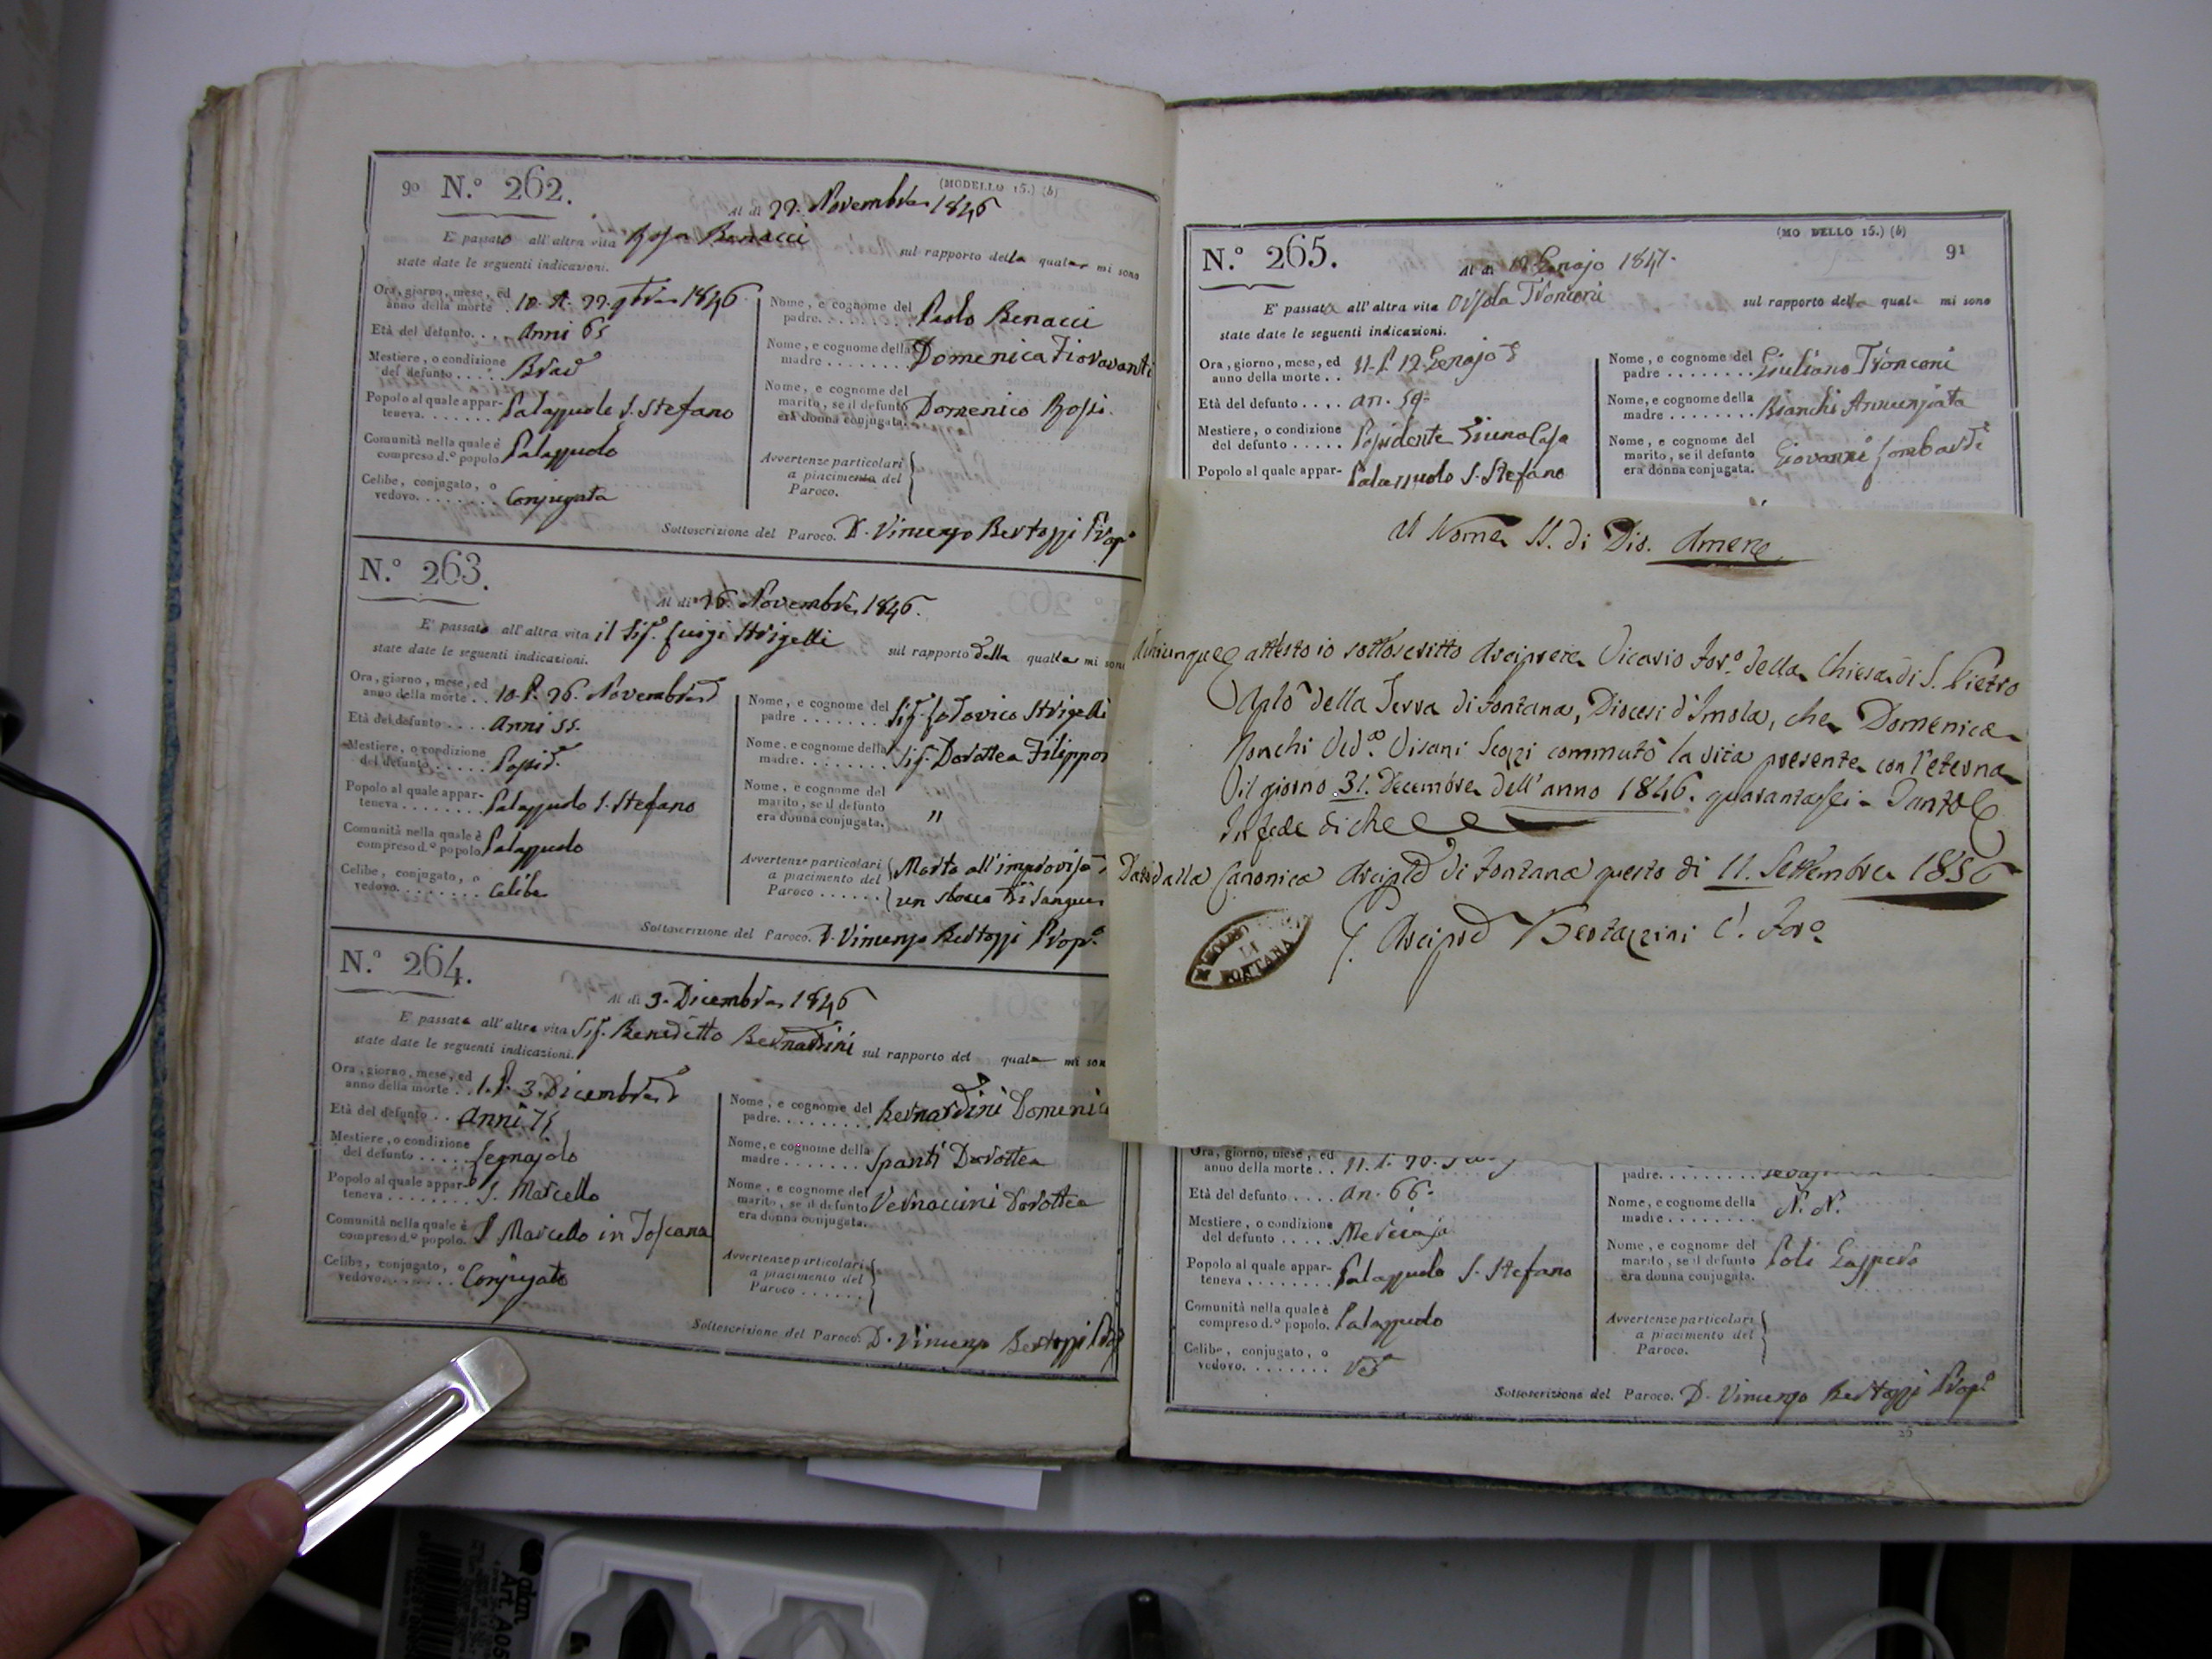 90 N.º 262. (MODELLO 15.) (b)
Al dì 22. Novembre 1846
E' passato all'altra vita Rosa Benacci sul rapporto della quale mi sono
state date le seguenti indicazioni.
Ora, giorno, mese, ed
anno della morte . 10. A. 22. 9bre 1846.
Età del defunto. . . . Anni 65
Mestiere, o condizione
del defunto . . . . . Brac
Popolo al quale appar-
teneva. . . . . . . Palazzuolo S. Stefano
Comunità nella quale è
compreso d.º popolo Palazzuolo
Celibe, conjugato, o
vedovo. . . . . . . . Conjugata
Nome, e cognome del
padre. . . Paolo Benacci
Nome, e cognome della
madre . . . . . . . . Domenica Fioravanti
Nome, e cognome del
marito, se il defunto
era donna conjugata. Domenico Rossi.
Avvertenze particolari
a piacimento del
Paroco.
Sottoscrizione del Paroco. D. Vincenzo Bertozzi Prop.º
N.º 263.
Al dì 26. Novembre 1846.
E' passato all'altra vita il Sig.r Luigi Strigelli sul rapporto della quale mi sono
state date le seguenti indicazioni.
Ora, giorno, mese, ed
anno della morte . . 10. P. 26. Novembre
Età del defunto . . . . Anni 55.
Mestiere, o condizione
del defunto . . . . . Possid.
Popolo al quale appar-
teneva . . . . . . . Palazzuolo S. Stefano
Comunità nella quale è
compreso d.º popolo Palazzuolo
Celibe, conjugato, o
vedovo. . . . . . . . Celibe
Nome, e cognome del
padre . . . . . . . . Sig. Lodovico Strigelli
Nome, e cognome della
madre. . . . . . . . Sig. Dorotea Filippon
Nome, e cognome del
marito, se il defunto
era donna conjugata. "
Avvertenze particolari
a piacimento del
Paroco . . . . . . Morto all'improviso
un sbocco di sangue
Sottoscrizione del Paroco. D. Vincenzo Bertozzi Prop.º
N.º 264.
Al dì 3. Dicembre 1846
E' passato all'altra vita Sig. Benedetto Bernardini sul rapporto del quale mi son
state date le seguenti indicazioni.
Ora, giorno, mese, ed
anno della morte . . 1. P. 3. Dicembre
Età del defunto . . . Anni 75
Mestiere, o condizione
del defunto . . . . . Legnajolo
Popolo al quale appar-
teneva . . . . . . . . S. Marcello
Comunità nella quale è
compreso d.º popolo. S. Marcello in Toscana
Celibe, conjugato, o
vedovo. . . . . . . . Conjugato
Nome, e cognome del
padre. . . . . . . . . Bernardini Domenico
Nome, e cognome della
madre . . . . . . . Spanti Dorotea
Nome, e cognome del
marito, se il defunto
era donna conjugata. Vernaccini Dorotea
Avvertenze particolari
a piacimento del
Paroco . . . . . .
Sottoscrizione del Paroco. D. Vincenzo Bertozzi Prop
N.º 265. (MODELLO 15.) (b) 91
Al dì 12 Genajo 1847.
E' passata all'altra vita Orsola Tronconi sul rapporto della quale mi sono
state date le seguenti indicazioni.
Ora, giorno, mese, ed
anno della morte . . 11. P. 12. Genajo
Età del defunto . . . . an. 59.
Mestiere, o condizione
del defunto . . . . . Possidente
Popolo al quale appar-
Palazzuolo S. Stefano
Nome, e cognome del
padre . . . . . . . . Giuliano Tronconi
Nome, e cognome della
madre . . . . . . . . Bianchi Annunziata
Nome, e cognome del
marito, se il defunto
era donna conjugata. Giovanni Lombardi
Al Nome SS. di Dio. Amene
A chiunque attesto io sottoscritto Arciprete Vicario For.º della Chiesa di S. Pietro
Aplõ della Terra di Fontana, Diocesi d'Imola, che Domenica
Ronchi Ved.ª Visani Scozzi commutò la vita presente con l'eterna
il giorno 31. Decembre dell'anno 1846. quarantasei. Tanto
In fede di che
Dato dalla Canonica Arcip.le di Fontana questo dì 11. Settembre 1856
Arcip.e Bertazzini V. For.º
DI
FONTANA
Ora, giorno, mese, ed
anno della morte . . 11.
Età del defunto . . . . an. 66.
Mestiere, o condizione
del defunto . . . . .
Popolo al quale appar-
teneva . . . . . . . . Palazzuolo S. Stefano
Comunità nella quale è
compreso d.º popolo. Palazzuolo
Celibe, conjugato, o
vedovo. . . . . . . . Ved
padre. . . . . . . . .
Nome, e cognome della
madre . . . . . . . . N. N.
Nome, e cognome del
marito, se il defunto
era donna conjugata. Poli Gaspero
Avvertenze particolari
a piacimento del
Paroco.
Sottoscrizione del Paroco. D. Vincenzo Bertozzi Prop.º
26
alan
Art. A05